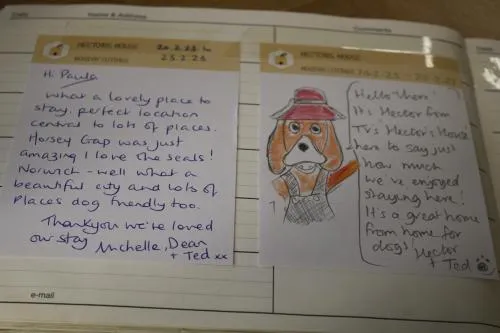 Date
Name & Address
Comments
HECTORS HOUSE
20.2.23 to
MONDAY CUTTINGS
25.2.23
Hi Paula
What a lovely place to
stay. perfect location
central to lots of places.
Horsey Gap was just
amazing I love the seals!
Norwich - well what a
beautiful city and lots of
places dog friendly too.
Thankyou we've loved
our stay Michelle, Dean
+ Ted xx
HECTORS HOUSE
20.2.23 - 25.2.23
Hello there!
Its Hector from
TV's Hector's House
here to say just
how much
we've enjoyed
staying here!
It's a great home
from home for
dogs! Hector
+ Ted
e-mail